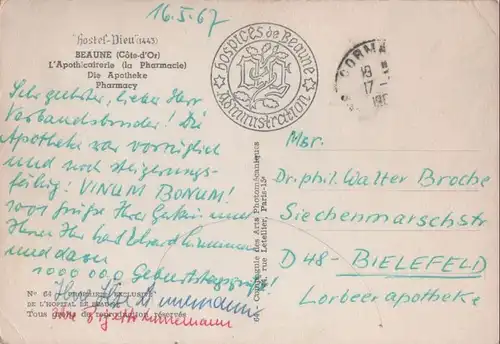 16.5.67
"Hostel-Dieu" (1443)
BEAUNE (Côte-d'Or)
L'Apothicairerie (la Pharmacie)
Die Apotheke
Pharmacy
Hospices de Beaune
Administration
18
17-
196
Sehr geehrter, lieber Herr
Verbandsbruder! Die
Apotheke war vorzüglich
und noch steigerungs-
fähig: VINUM BONUM!
1001 Grüße Ihrer Gattin und
Ihnen Ihr
und davon
1000 000 Geburtstagsgrüße!
Msr.
Dr. phil. Walter Broche
Siechenmarschstr
D 48 - BIELEFELD
Lorbeerapotheke
Compagnie des Arts Photomécaniques
rue Letellier, Paris-15e
N° 64
EXCLUSIVE
DE L'HOPITAL DE BEAUNE
Tous droits de reproduction réservés
Ihre